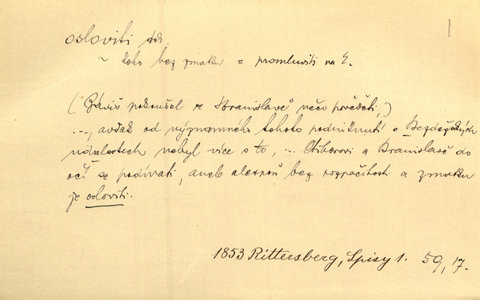 osloviti dok.
~ koho bez zmatku = promluviti na č.
(Záviš pokoušel se Branislavě něco pověděti,)
..., avšak od významného tohoto podniknutí o Bezdězských
událostech nebyl více s to, – Ctiborovi a Branislavě do
očí se podívati, aneb alespoň bez rozpačitosti a zmatku
je osloviti.
1853 Rittersberg, Spisy 1. 59, 17.